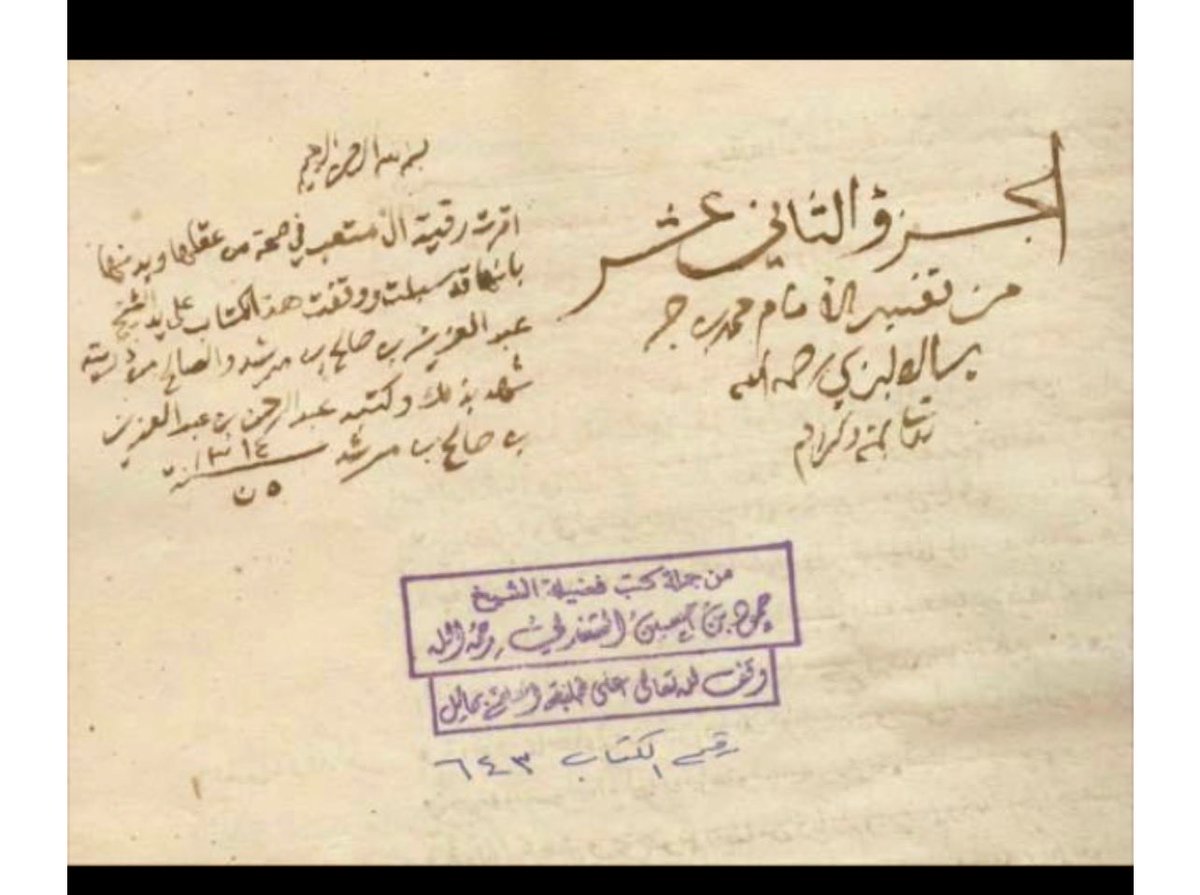 الجزؤ الثاني عشر
من تفسير الامام محمد بن جر
ير الطبري رحمه الله
بمنه وكرمه
بسم الله الرحمن الرحيم
اقرت رقية ال متعب في صحة من عقلها وبدنها
بانها قد سبلت ووقفت هذا الكتاب على يد الشيخ
عبد العزيز بن صالح بن مرشد والصالح من ذريته
شهد بذلك وكتبه عبد الرحمن بن عبد العزيز
بن صالح بن مرشد سنة ١٣١٤
ن ٥
من جملة كتب فضيلة الشيخ
حمود بن حسين الشغدلي رحمه الله
وقف لله تعالى على طلبة العلم بحايل
رقم الكتاب ٦٤٣